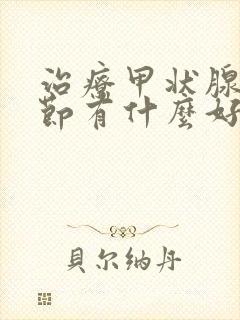 治療甲状腺
節有什麽好
貝尔纳丹